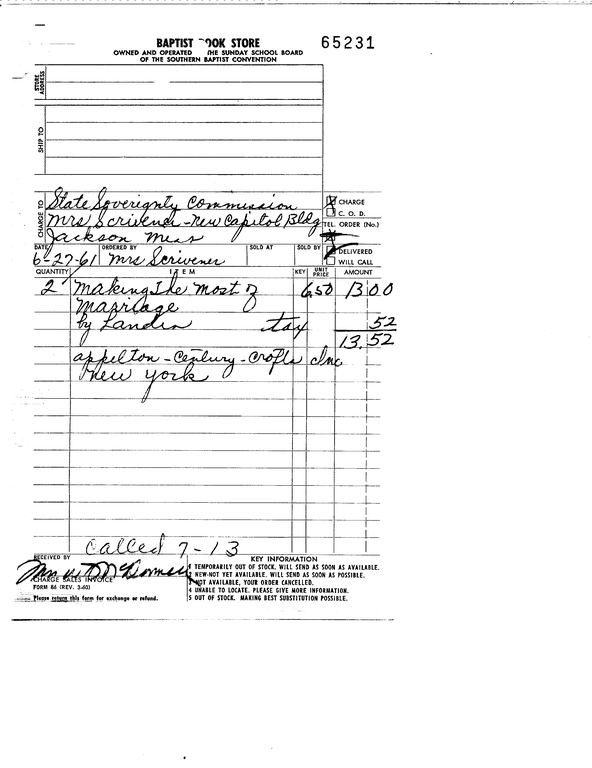 BAPTIST OOK STORE 65231
OWNED AND OPERATED THE SUNDAY SCHOOL BOARD
OF THE SOUTHERN BAPTIST CONVENTION
STORE ADDRESS
SHIP TO
CHARGE TO
State Soverignty Commission
Mrs Scrivener - New Capitol Bldg
Jackson Miss
CHARGE
C. O. D.
TEL. ORDER (No.)
DATE ORDERED BY SOLD AT SOLD BY DELIVERED
6-27-61 Mrs Scrivener WILL CALL
QUANTITY ITEM KEY UNIT PRICE AMOUNT
2 Making The Most of 6.50 13 00
Marriage
by Landis tax 52
13.52
appelton - Century - Crofts Inc
New York
Called 7-13
RECEIVED BY KEY INFORMATION
CHARGE SALES INVOICE
FORM 86 (REV. 3-60)
Please return this form for exchange or refund.
1 TEMPORARILY OUT OF STOCK. WILL SEND AS SOON AS AVAILABLE.
2 NEW-NOT YET AVAILABLE. WILL SEND AS SOON AS POSSIBLE.
NOT AVAILABLE, YOUR ORDER CANCELLED.
4 UNABLE TO LOCATE. PLEASE GIVE MORE INFORMATION.
5 OUT OF STOCK. MAKING BEST SUBSTITUTION POSSIBLE.